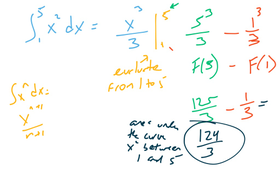 ∫₁⁵ x² dx = x³/3 |₁⁵ 5³/3 − 1³/3
F(5) − F(1)
evaluate
from 1 to 5
∫xⁿ dx =
xⁿ⁺¹/n+1
125/3 − 1/3 =
124/3
area under
the curve
x² between
1 and 5